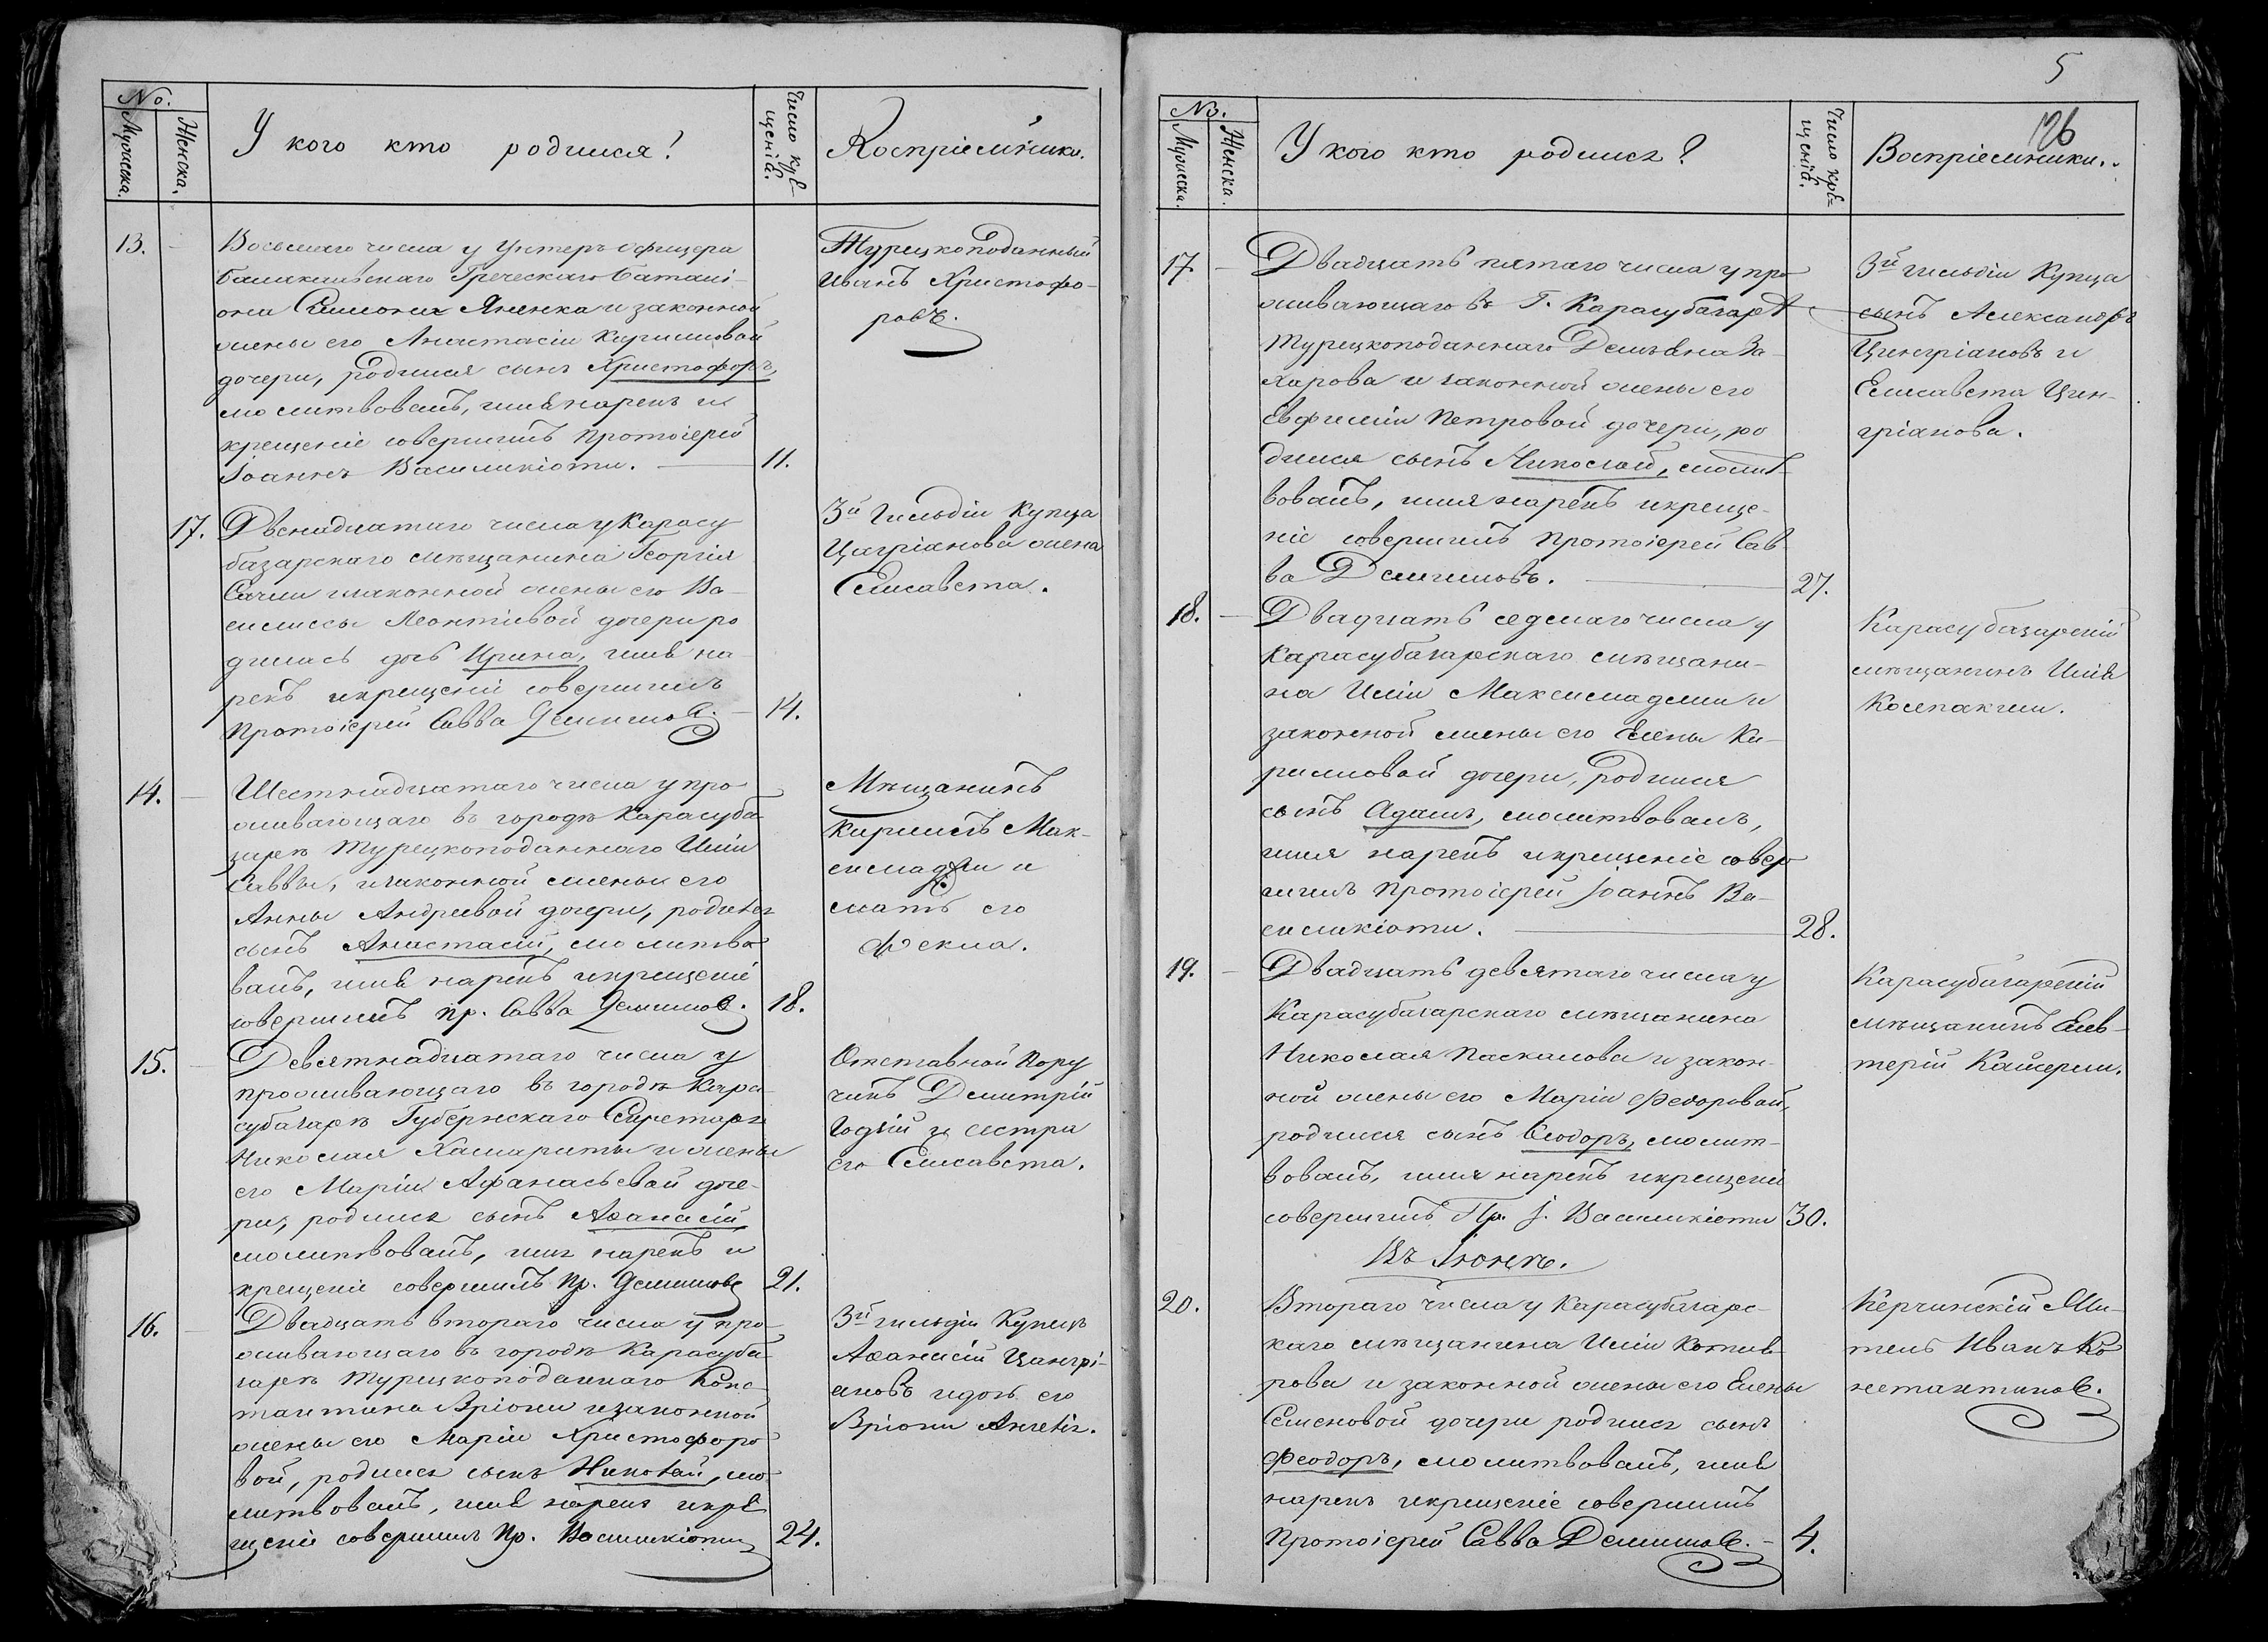 No.
Мужеска.
Женска.
У кого кто родился?
Число кре-
щенія.
Воспріемники.
13.
Восьмаго числа у Унтеръ-Офицера
Балаклавскаго Греческаго Баталі-
она Симона Яненка и законной
жены его Анастасіи Кириловой
дочери, родился сынъ Христофоръ,
молитвовалъ, имя нарекъ и
крещеніе совершилъ Протоіерей
Іоаннъ Василикіоти.
11.
Турецкоподанный
Иванъ Христофо-
ровъ.
17.
Двенадцатаго числа у Карасу
базарскаго мѣщанина Георгія
и законной жены его Ва-
силиссы Леонтіевой дочери ро
дилась дочь Ирина, имя на-
рекъ и крещеніе совершилъ
Протоіерей Савва Демишовъ.
14.
3й Гильдіи Купца
Цагріанова жена
Елисавета.
14.
Шестнадцатаго числа у про
живающаго въ городѣ Карасуба
зарѣ Турецкоподаннаго Иліи
Саввы, и законной жены его
Анны Андреевой дочери, родился
сынъ Анастасій, молитво
валъ, имя нарекъ и крещеніе
совершилъ пр. Савва Демишовъ.
18.
Мѣщанинъ
Кирилъ Мак-
симаджи и
мать его
Фекла.
15.
Девятнадцатаго числа у
проживающаго въ городѣ Кара-
субазарѣ Губернскаго Секретаря
Николая Хамариты и жены
его Маріи Афанасьевой доче-
ри, родился сынъ Аѳанасій,
молитвовалъ, имя нарекъ и
крещеніе совершилъ пр. Демишовъ
21.
Отставной Пору
чикъ Дмитрій
и сестра
его Елисавета.
16.
Двадцать втораго числа у про-
живающаго въ городѣ Карасуба-
зарѣ Турецкоподаннаго Конс-
тантина Вріони и законной
жены его Маріи Христофоро
вой, родился сынъ Николай, мо-
литвовалъ, имя нарекъ и кре
щеніе совершилъ пр. Василикіоти
24.
3й гильдіи Купецъ
Аѳанасій Цангрі-
ановъ и дочь его
Вріони
5
126
No.
Мужеска.
Женска.
У кого кто родился?
Число кре-
щенія.
Воспріемники.
17.
Двадцать пятаго числа у про
живающаго въ Г. Карасубазарѣ
Турецкоподаннаго Демьяна За-
харова и законной жены его
Евфиміи Петровой дочери, ро
дился сынъ Николай, молит-
вовалъ, имя нарекъ и креще-
ніе совершилъ Протоіерей Сав-
ва Демишовъ.
27.
3й гильдіи Купца
сынъ Александръ
Цингріановъ и
Елисавета Цин-
гріанова.
18.
Двадцать седмаго числа у
Карасубазарскаго мѣщани-
на Иліи Максимаджи и
законной жены его Елены Ки-
риловой дочери, родился
сынъ Адамъ, молитвовалъ,
имя нарекъ и крещеніе совер
шилъ Протоіерей Іоаннъ Ва-
силикіоти.
28.
Карасубазарскій
мѣщанинъ Илія
Колпакчи.
19.
Двадцать девятаго числа у
Карасубазарскаго мѣщанина
Николая Паскалова и закон-
ной жены его Маріи Федоровой,
родился сынъ Ѳеодоръ, молит-
вовалъ, имя нарекъ и крещеніе
совершилъ Пр. І. Василикіоти
30.
Карасубазарскій
мѣщанинъ Елев-
терій
Въ Іюнѣ.
20.
Втораго числа у Карасубазарс-
каго мѣщанина Иліи
и законной жены его Елены
Семеновой дочери родился сынъ
Феодоръ, молитвовалъ, имя
нарекъ и крещеніе совершилъ
Протоіерей Савва Демишовъ.
4.
Керчинскій Жи-
тель Иванъ Ко
нстантиновъ.